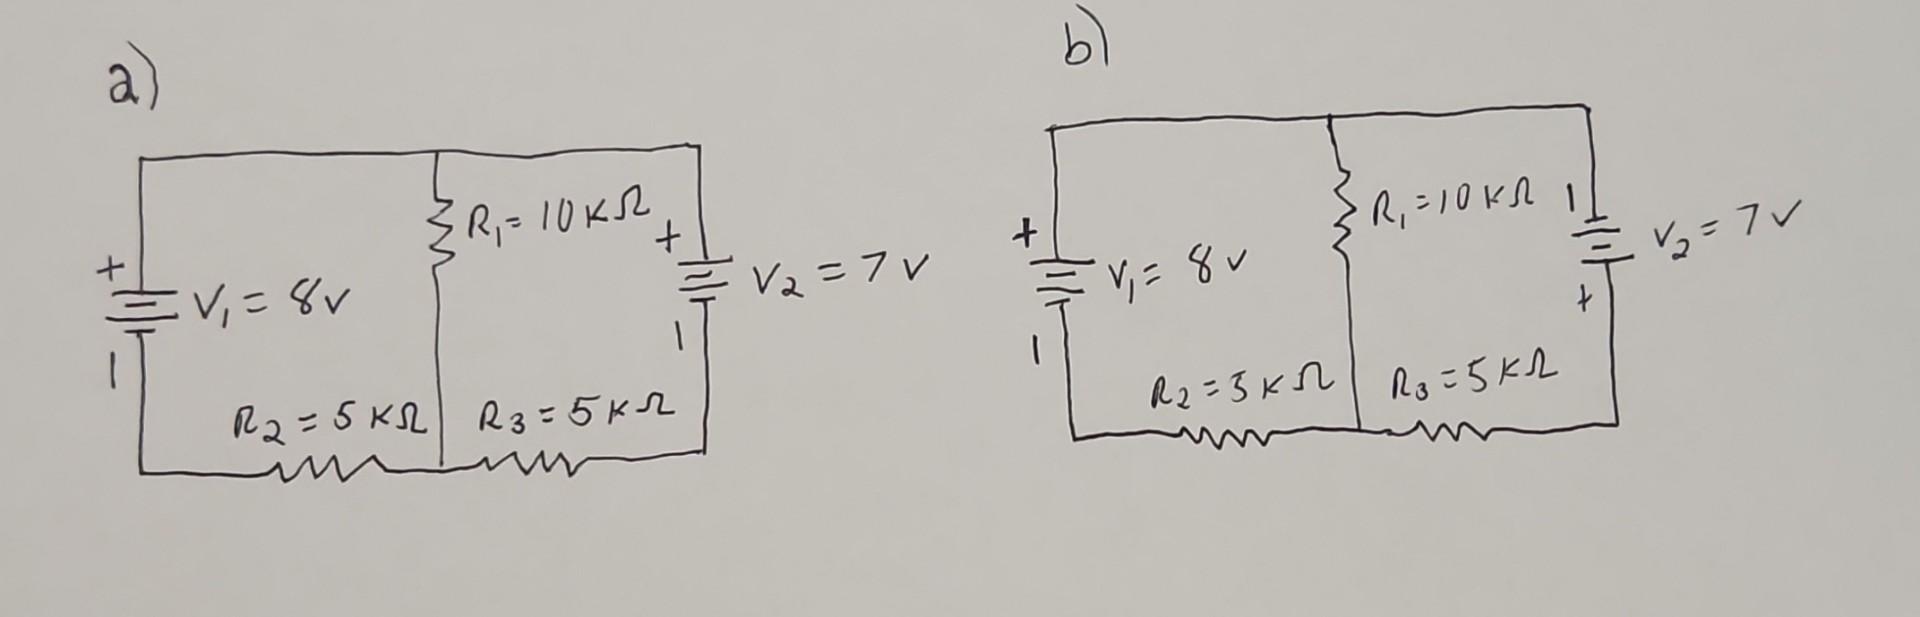 a)
R₁ = 10 KΩ
+
+
V₁ = 8v
V₂ = 7 v
|
|
R₂ = 5 KΩ
R₃ = 5 KΩ
b)
R₁ = 10 KΩ
|
+
V₁ = 8 v
V₂ = 7 v
+
|
R₃ = 5 KΩ